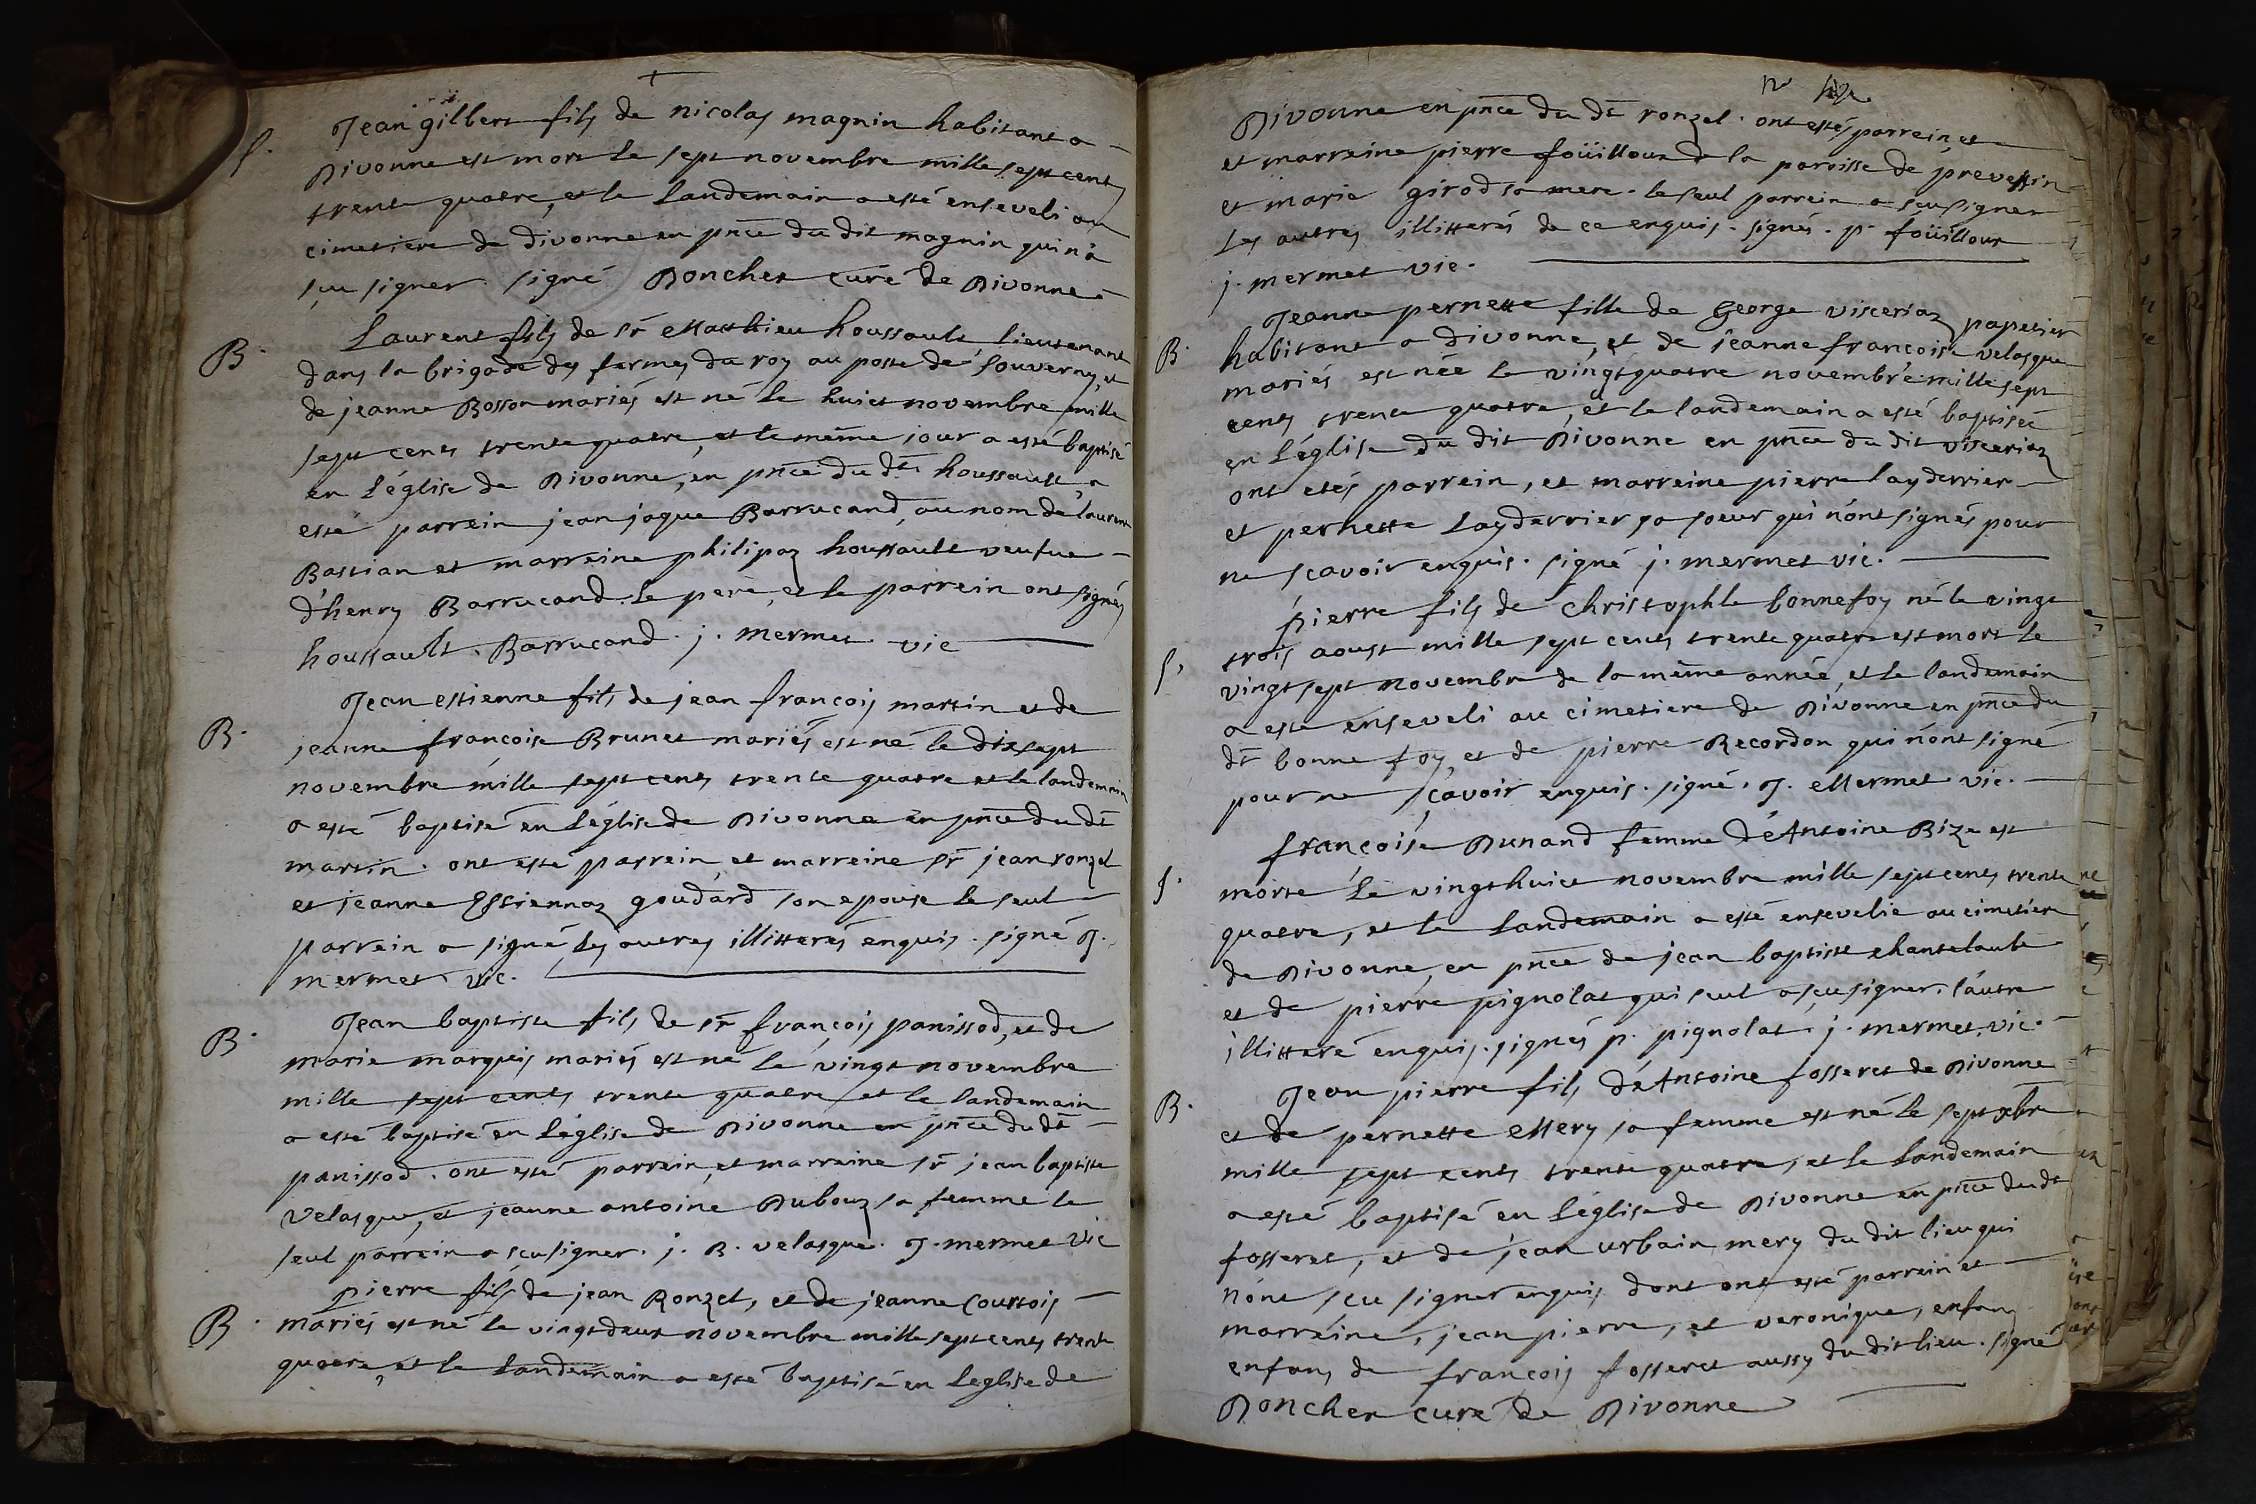 S.
Jean gilbert fils de nicolas magnin habitant a
Divonne est mort le sept novembre mille sept cents
trente quatre, et le landemain a esté enseveli au
cimetiere de divonne en pnce du dit magnin qui n'a
sçu signer. signé Doncher curé de Divonne
B.
Laurent fils de sr Matthieu houssault lieutenant
dans la brigade des fermes du roy au poste de Souverny, et
de jeanne Bosson mariés est né le huict novembre mille
sept cents trente quatre, et le même jour a esté baptisé
en l'église de Divonne, en pnce du dt houssault, a
esté parrein jean jaque Barrucand, au nom de laurent
Bastian et marreine philipaz houssault veufue
d'henry Barrucand. le pere, et le parrein ont signés
houssault. Barrucand. j. mermet vic
B.
Jean estienne fils de jean françois martin et de
jeanne françoise Brunet mariés est né le dixsept
novembre mille sept cents trente quatre et le landemain
a esté baptisé en l'église de Divonne en pnce du dt
martin. ont esté parrein, et marreine sr jean ronzet
et jeanne Estiennaz goudard son epouse le seul
parrein a signé, les autres illitterés enquis. signé J.
mermet vic.
B.
Jean baptiste fils de sr françois panissod, et de
marie marquis mariés est né le vingt novembre
mille sept cents trente quatre et le landemain
a esté baptisé en l'église de Divonne en pnce du dt
panissod. ont esté parrein, et marreine sr jean baptiste
Velasque, et jeanne antoine Dubouz sa femme le
seul parrein a sçu signer. j. B. velasque. J. mermet vic
B.
pierre fils de jean Ronzet, et de jeanne Courtois
mariés est né le vingtdeux novembre mille sept cents trente
quatre, et le landemain a esté baptisé en l'eglise de
Divonne en pnce du dt ronzet. ont estés parrein, et
et marreine pierre foüilloux de la paroisse de prevessin
et marie girod sa mere. le seul parrein a sçu signer
les autres illitterés de ce enquis. signés. p. foüilloux
j. mermet vic.
B.
Jeanne pernette fille de George visceriaz papetier
habitant a divonne, et de jeanne françoise velasque
mariés est née le vingtquatre novembre mille sept
cents trente quatre, et le landemain a esté baptisée
en l'église du dit Divonne en pnce du dit visceriaz
ont estés parrein, et marreine pierre layderrier
et pernette Layderrier sa soeur qui n'ont signés pour
ne sçavoir enquis. signé j. mermet vic.
S.
pierre fils de Christophle bonnefoy né le vingt
trois aoust mille sept cents trente quatre est mort le
vingt sept novembre de la même année, et le landemain
a esté enseveli au cimetiere de Divonne en pnce du
dt bonne foy, et de pierre Recordon qui n'ont signé
pour ne sçavoir enquis. signé. J. Mermet vic.
S.
françoise Dunand femme d'Antoine Bize est
morte le vingthuict novembre mille sept cents trente
quatre, et le landemain a esté ensevelie au cimetiere
de Divonne, en pnce de jean baptiste chantelaube
et de pierre pignolat qui seul a sçu signer, l'autre
illitteré enquis. signés p. pignolat. j. mermet, vic.
B.
Jean pierre fils d'Antoine fosseret de Divonne
et de pernette Mery sa femme est né le sept xbre
mille sept cents trente quatre, et le landemain
a esté baptisé en l'église de Divonne en pnce du dt
fosseret, et de jean urbain mery du dit lieu qui
n'ont sçu signer enquis, dont ont esté parrein et
marreine, jean pierre, et veronique, enfans
enfans de françois fosseret aussy du dit lieu. signé
Doncher curé de Divonne